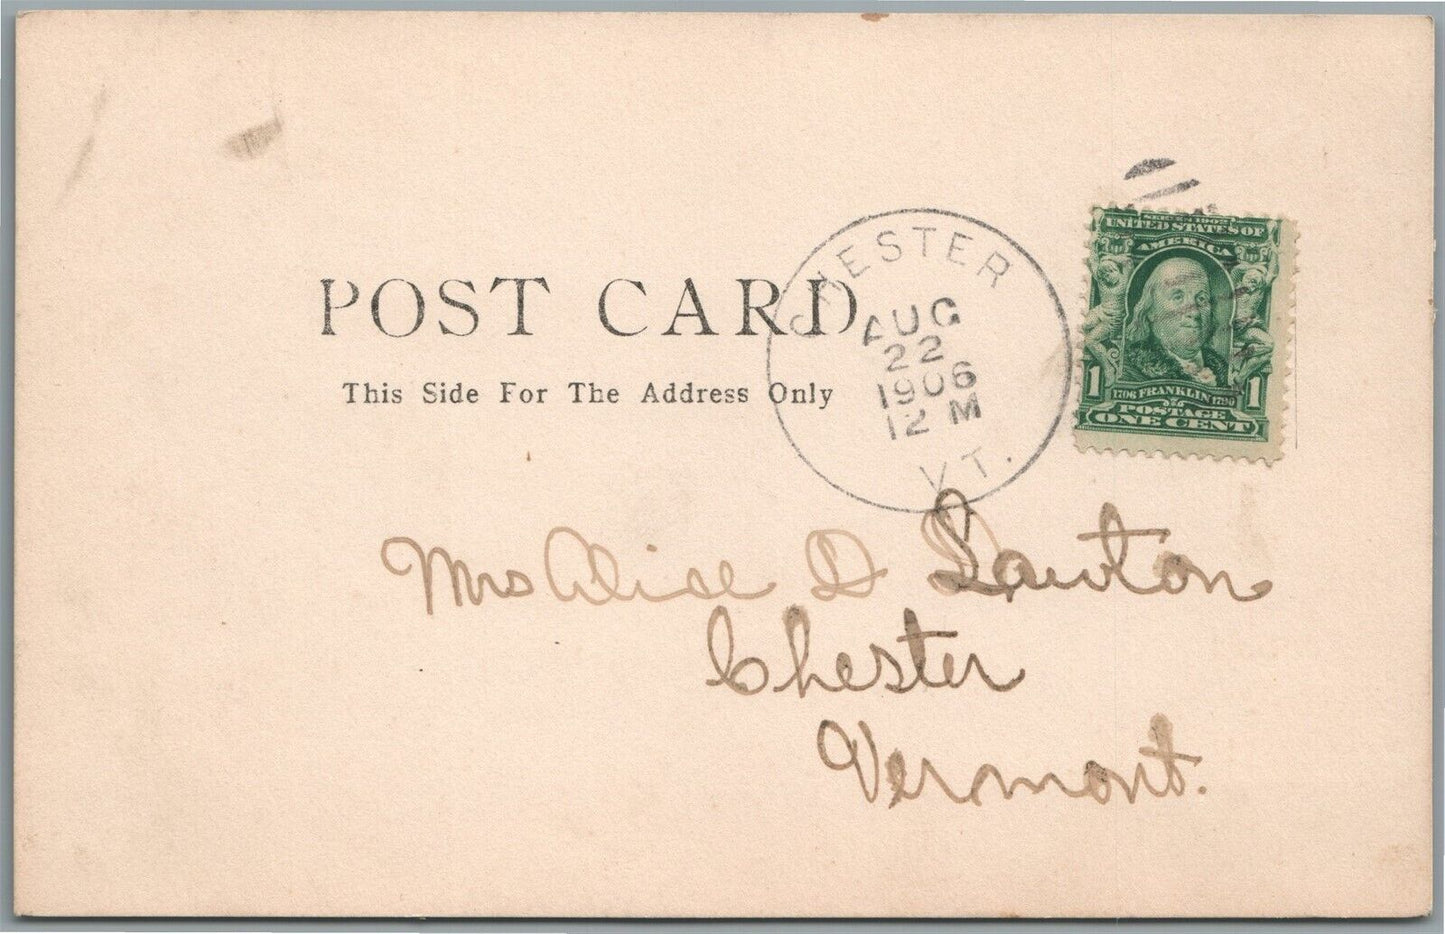 POST CARD
This Side For The Address Only
CHESTER
AUG
22
1906
12 M
VT.
SERIES 1902
UNITED STATES OF
AMERICA
1 1706 FRANKLIN 1790 1
POSTAGE
ONE CENT
Mrs Alice D Lawton
Chester
Vermont.